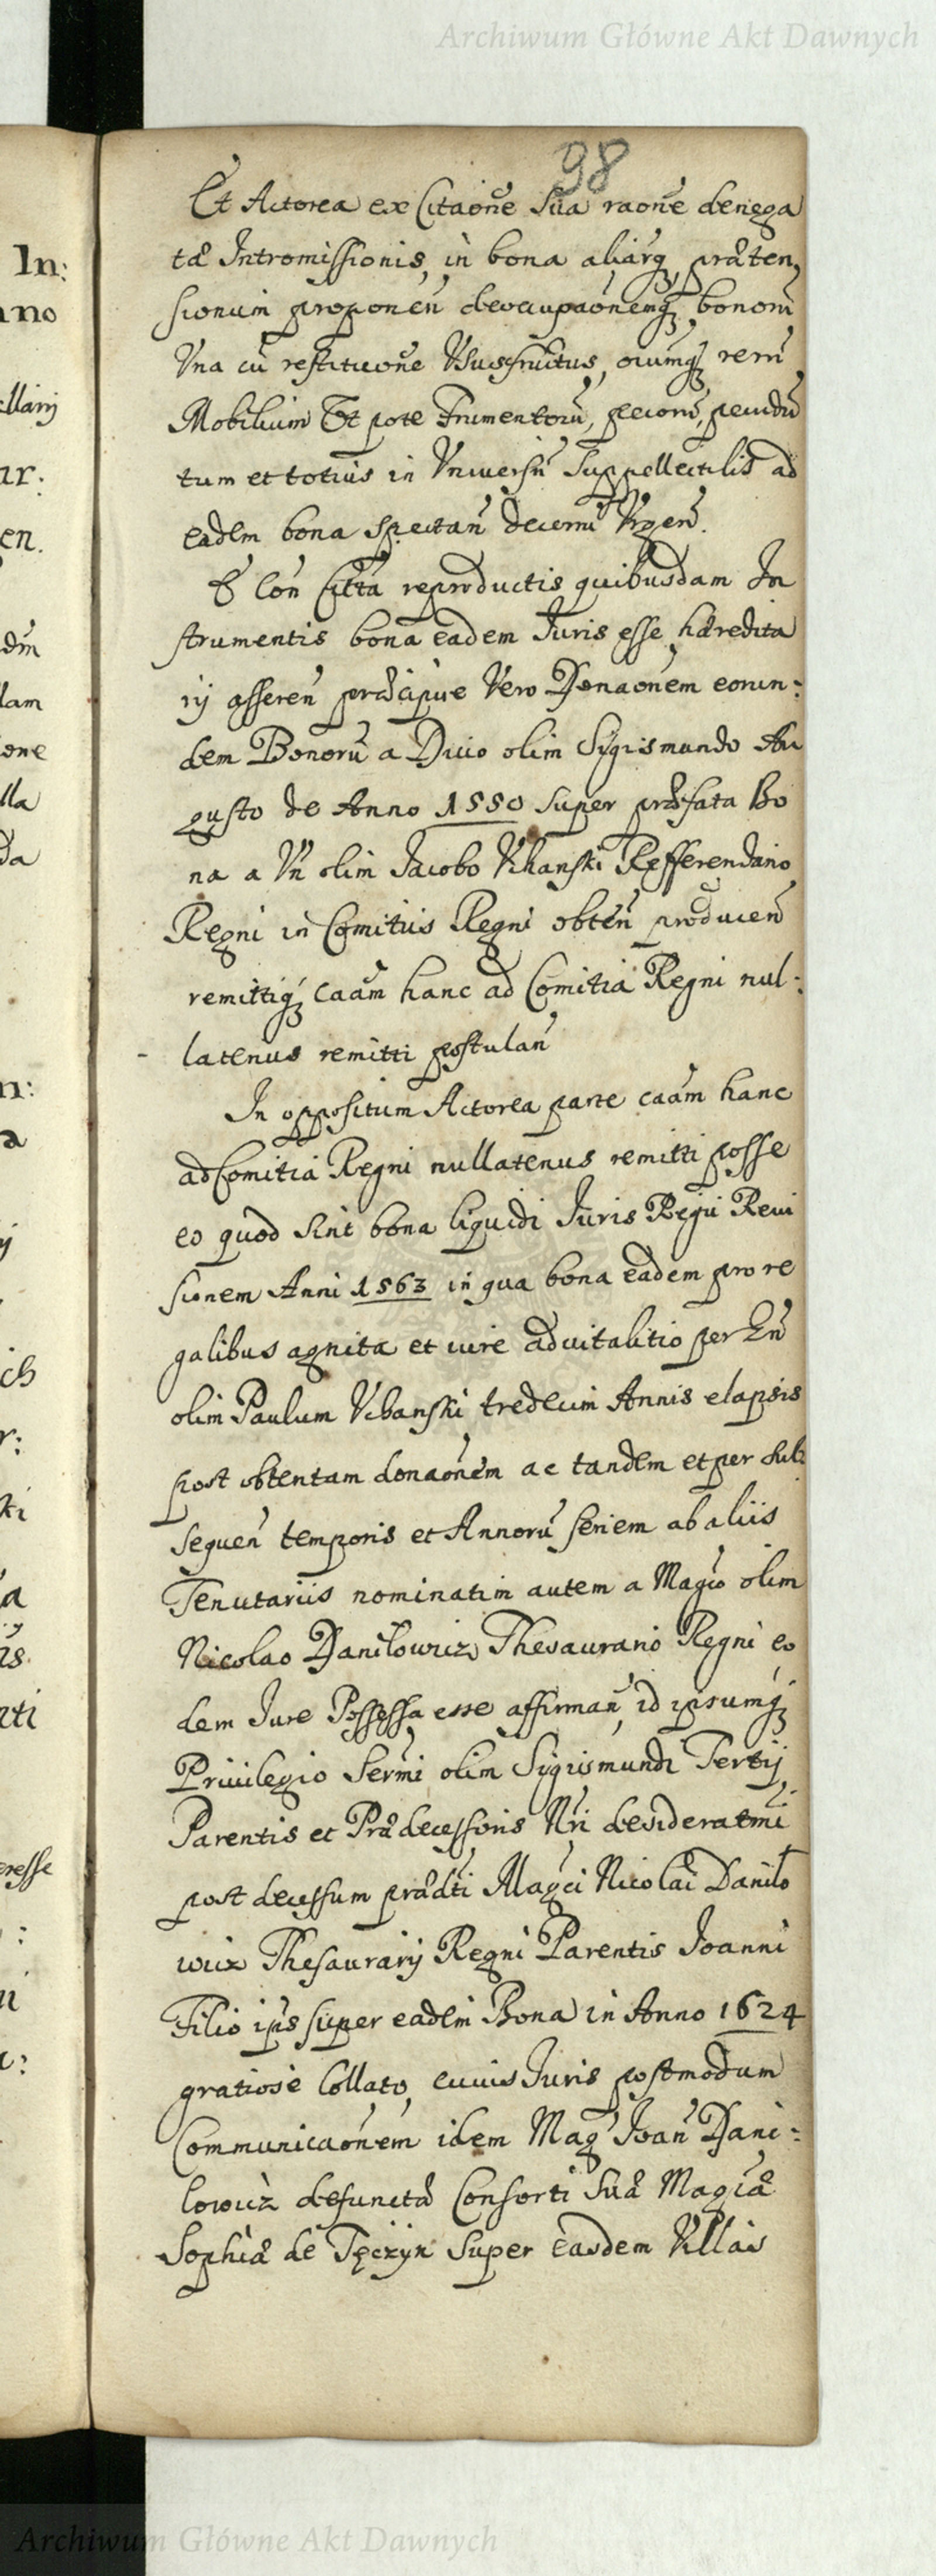 Archiwum Główne Akt Dawnych
98
Et Actorea ex Citaone Sua raone denega
tæ Intromissionis, in bona aliarq. præten,
sionum proponen deoccupaonemq bonorū
Una cū restitutione Ususfructus, oiumq rerū
Mobilium Ut pote Frumentorū, pecorū, pecudū
tum et totius in Universū Suppellectilis ad
eadem bona spectan decerni Urgen.
Et Con Citta reproductis quibusdam In
strumentis bona eadem Juris esse hæredita
rij asseren præcipue Vero Donaonem eorun:
dem Bonorū a Divo olim Sigismundo Au
gusto de Anno 1550 super præfata Bo
na a Gn olim Jacobo Uhanski Refferendario
Regni in Comitiis Regni obten producen
remittiq caam hanc ad Comitia Regni nul:
latenus remitti postulan
In oppositum Actorea parte caam hanc
ad Comitia Regni nullatenus remitti posse
eo quod sint bona liquidi Juris Regii Revi
sionem Anni 1563 in qua bona eadem pro re
galibus agnita et iure advitalitio per Gn
olim Paulum Uhanski tredecim Annis elapsis
post obtentam donaonem ac tandem et per sub
sequen temporis et Annorū seriem ab aliis
Tenutariis nominatim autem a Magco olim
Nicolao Danilowicz Thesaurario Regni eo
dem Jure Possessa esse affirman, id ipsumq
Privilegio Sermi olim Sigismundi Tertij
Parentis et Prædecessoris Nri desideratmi
post decessum prædti Magci Nicolai Daniło
wicz Thesaurarij Regni Parentis Joanni
Filio ipis super eadem Bona in Anno 1624
gratiose Collato, cuius Juris postmodum
Communicaonem idem Mag Joan Dani:
lowicz defunctæ Consorti Suæ Magcæ
Sophiæ de Tęczyn super easdem Villas
In:
nno
llarij
ar:
en.
dm
lam
one
lla
da
n:
a
ij
ch
r:
ti
a
is
ti
eresse
:
ni
Archiwum Główne Akt Dawnych